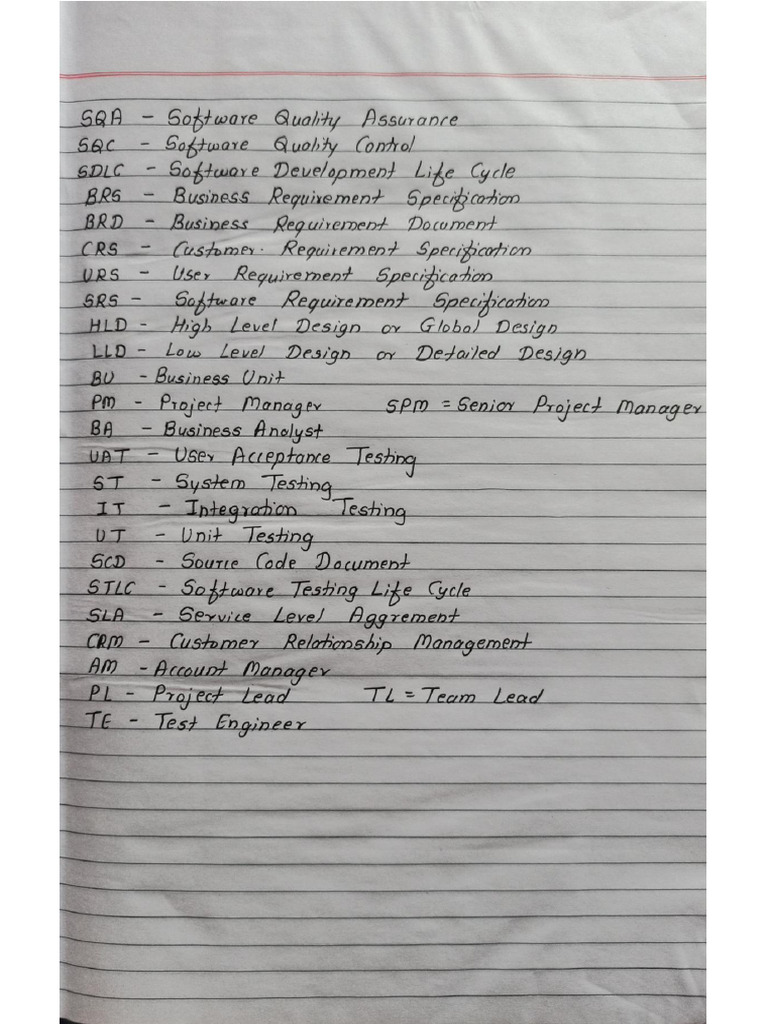 SQA - Software Quality Assurance
SQC - Software Quality Control
SDLC - Software Development Life Cycle
BRS - Business Requirement Specification
BRD - Business Requirement Document
CRS - Customer. Requirement Specification
URS - User Requirement Specification
SRS - Software Requirement Specification
HLD - High Level Design or Global Design
LLD - Low Level Design or Detailed Design
BU - Business Unit
PM - Project Manager SPM = Senior Project Manager
BA - Business Analyst
UAT - User Acceptance Testing
ST - System Testing
IT - Integration Testing
UT - Unit Testing
SCD - Source Code Document
STLC - Software Testing Life Cycle
SLA - Service Level Aggrement
CRM - Customer Relationship Management
AM - Account Manager
PL - Project Lead TL = Team Lead
TE - Test Engineer